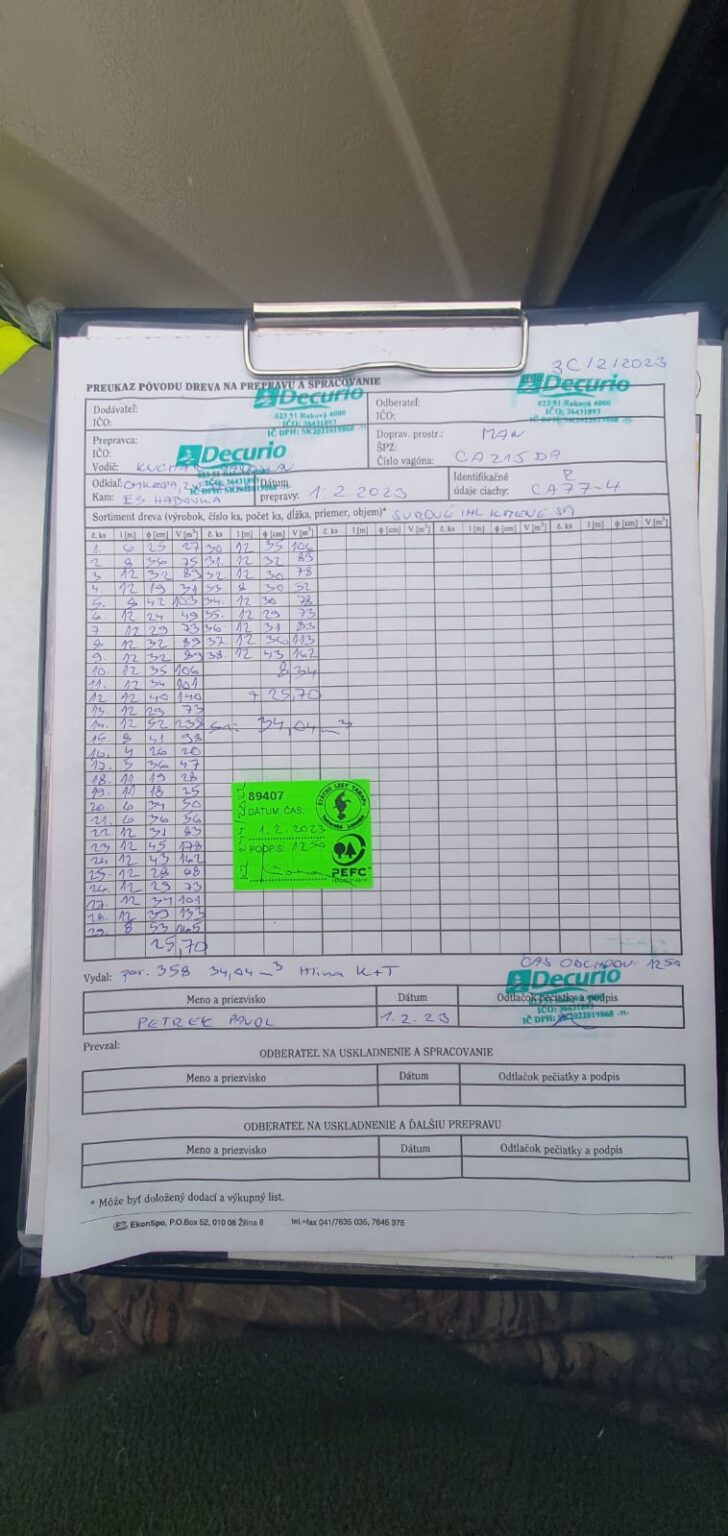 3C/2/2023
PREUKAZ PÔVODU DREVA NA PREPRAVU A SPRACOVANIE
Dodávateľ:
IČO:
Decurio
023 51 Raková 4000
IČO: 36431893
IČ DPH: SK2022019868
Odberateľ:
IČO:
Decurio
023 51 Raková 4000
IČO: 36431893
IČ DPH: SK2022019868 -11-
Prepravca:
IČO:
Vodič:
Decurio
Doprav. prostr.: MAN
ŠPZ:
Číslo vagóna: CA215DA
Odkiaľ:
Kam: ES HABOVKA
Dátum
prepravy: 1.2.2023
Identifikačné
údaje ciachy: CA77-4
Sortiment dreva (výrobok, číslo ks, počet ks, dĺžka, priemer, objem)* SUROVÉ IHL KMENE SM
č. ks l [m] ϕ [cm] V [m³] č. ks l [m] ϕ [cm] V [m³] č. ks l [m] ϕ [cm] V [m³] č. ks l [m] ϕ [cm] V [m³] č. ks l [m] ϕ [cm] V [m³]
1. 6 25 27 30 12 35 106
2 8 36 75 31. 12 32 89
3 12 32 89 32 12 30 78
4 12 19 31 33 8 30 52
5. 8 42 103 34. 12 30 78
6. 12 24 49 35. 12 29 73
7 12 29 73 36 12 31 83
8 12 32 89 37 12 36 113
9. 12 32 89 38. 12 43 162
10. 12 35 106 8,34
11. 12 34 101
12 12 40 140 + 25,70
13. 12 29 73
14. 12 52 238 34,04 m3
15 8 41 98
16. 4 26 20
17. 5 36 47
18. 11 19 28
19. 11 18 25
20. 6 34 50
21. 6 36 56
22 12 31 83
23 12 45 178
24 12 43 162
25 12 28 68
26. 12 29 73
27. 12 34 101
28. 12 39 133
29. 8 53 165
25,70
89407
DÁTUM ČAS:
1.2.2023
PODPIS: 1250
ŠTÁTNE LESY TANAPU
PEFC
Vydal: por. 358 34,04 m3 Hlina K+T
ČAS ODCHODU: 1250
Decurio
IČO: 36431893
IČ DPH: SK2022019868 -11-
Meno a priezvisko Dátum Odtlačok pečiatky a podpis
PETREK PAVOL 1.2.23
Prevzal:
ODBERATEĽ NA USKLADNENIE A SPRACOVANIE
Meno a priezvisko Dátum Odtlačok pečiatky a podpis
ODBERATEĽ NA USKLADNENIE A ĎALŠIU PREPRAVU
Meno a priezvisko Dátum Odtlačok pečiatky a podpis
* Môže byť doložený dodací a výkupný list.
EkonSpo, P.O.Box 52, 010 08 Žilina 8 tel.+fax 041/7635 035, 7645 375